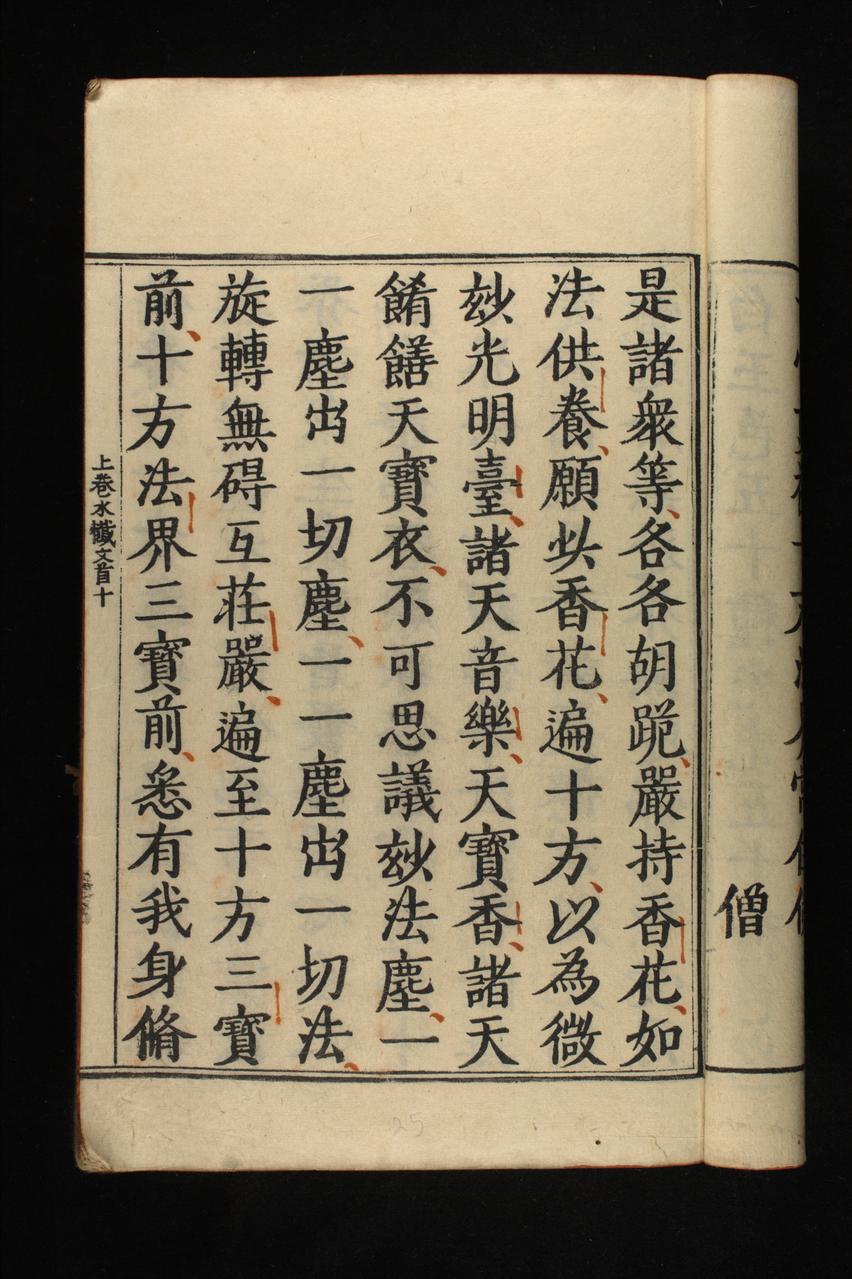 僧
是諸衆等各各胡跪嚴持香花如
法供養願此香花遍十方以為微
玅光明臺諸天音樂天寶香諸天
餚饍天寶衣不可思議玅法塵一
一塵出一切塵一一塵出一切法
旋轉無碍互莊嚴遍至十方三寶
前十方法界三寶前悉有我身脩
上卷水懺文首十